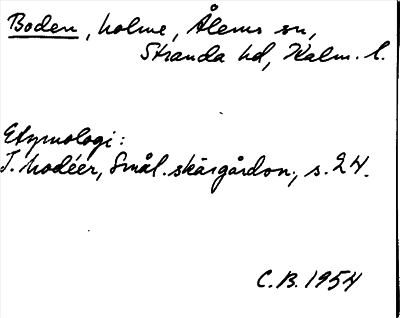 Boden, holme, Ålems sn,
Stranda hd, Kalm. l.
Etymologi:
I. Modéer, Smål. skärgården, s. 24.
C.B. 1954